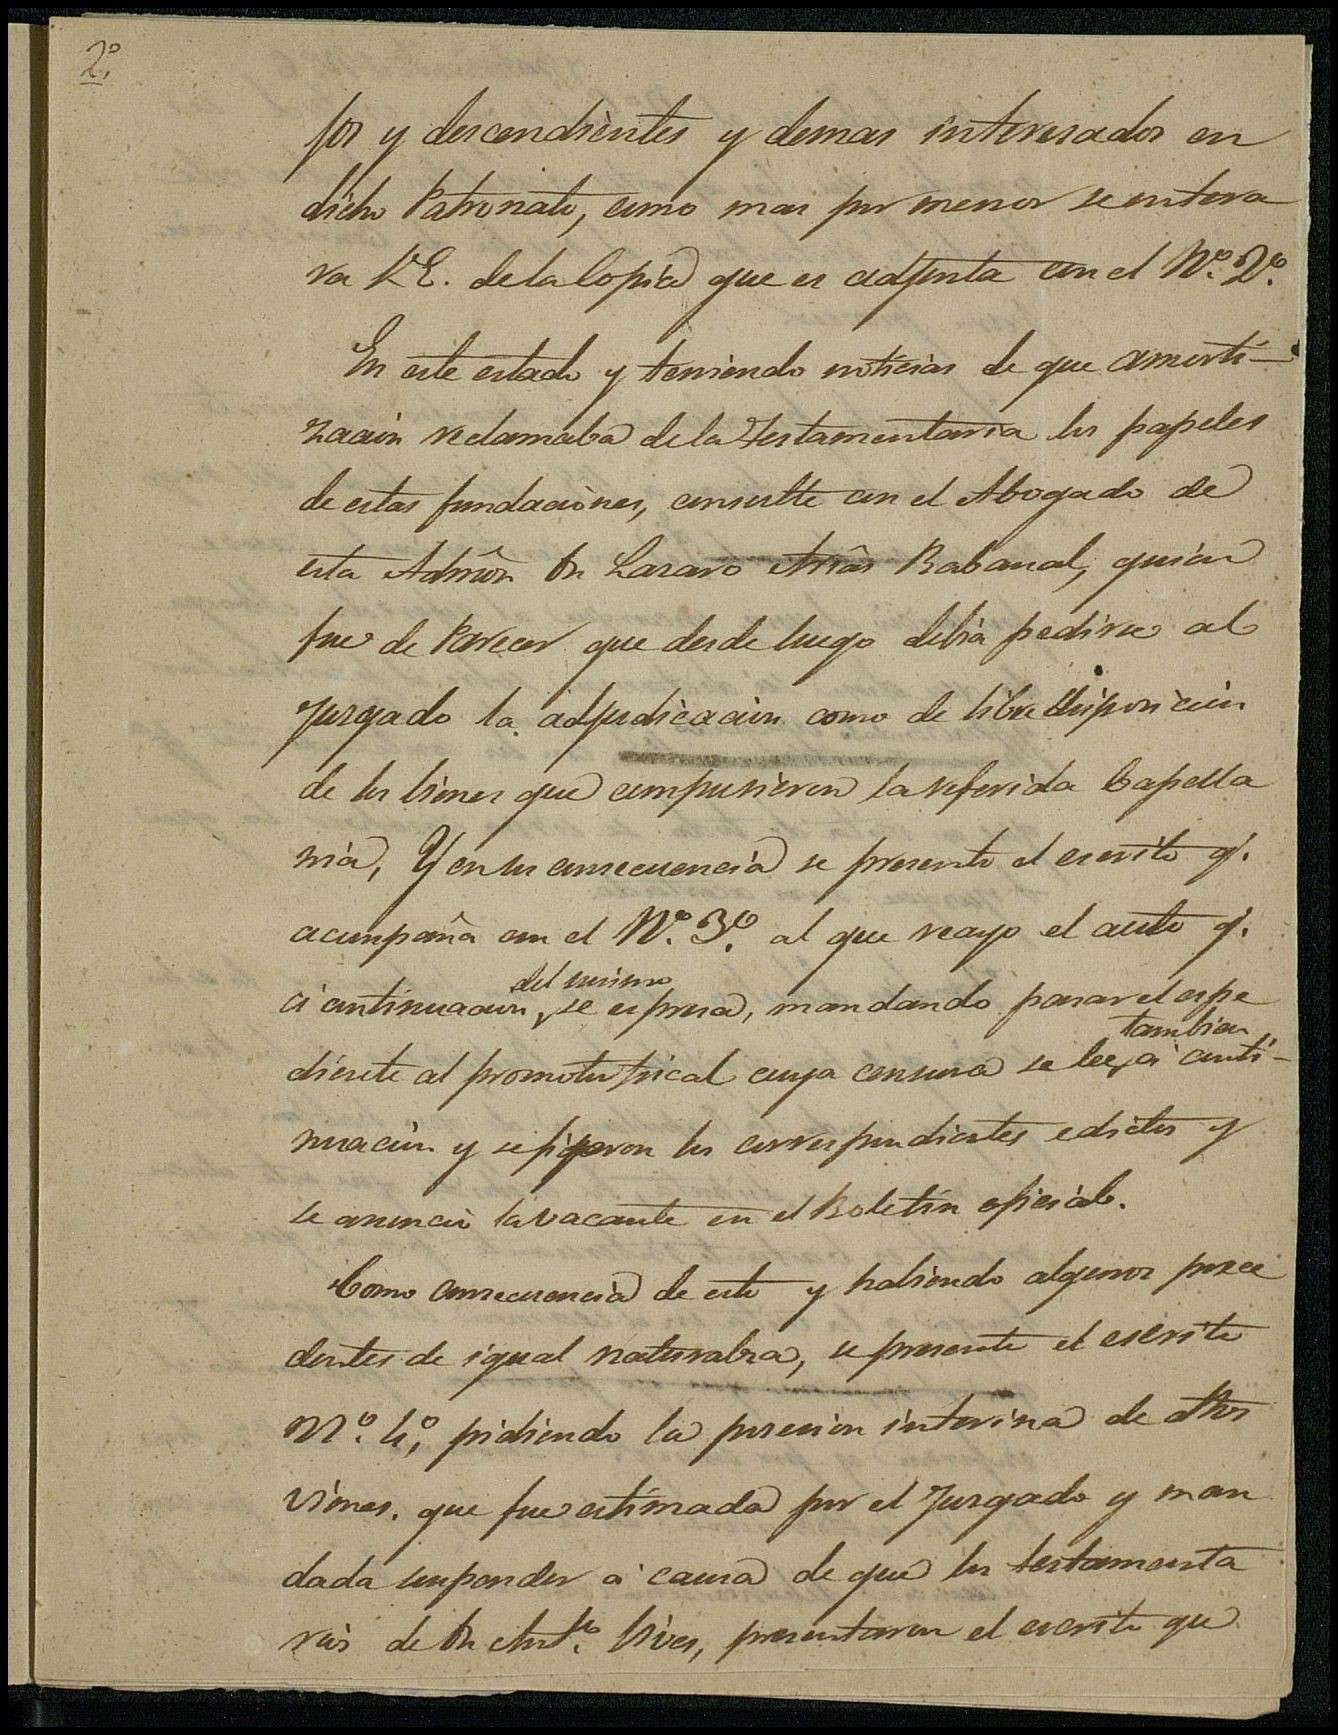 2º.
jos y descendientes y demas interesados en
dicho Patronato, como mas por menor se entera
ra V.E. de la Copia que es adjunta con el Nº. 2º.
En este estado y teniendo noticias de que amorti-
zacion reclamaba de la Testamentaria los papeles
de estas fundaciones, consulté con el Abogado de
esta Admôn Dn Lazaro Arîas Rabanal, quien
fue de Parecer que desde luego debia pedirse al
Juzgado la adjudicacion como de libre disposicion
de los bienes que compusieron la referida Capella
nia, Y en su consecuencia se presento el escrito q.
acompaña con el Nº. 3º. al que recayo el auto q.
á continuacion del mismo se espresa, mandando pasar el espe
diente al promotor fiscal cuya censura se lee tambien á conti-
nuacion y se figaron los correspondientes edictos y
se anunció la vacante en el Boletin oficial.
Como consecuencia de esto y habiendo algunos prece
dentes de igual naturaleza, se presentó el escrito
Nº. 4º, pidiendo la posesion interina de dhos
vienes. que fue estimada por el Juzgado y man
dada suspender á causa de que los testamenta
rios de Dn Antº. Vives, presentaron el escrito que